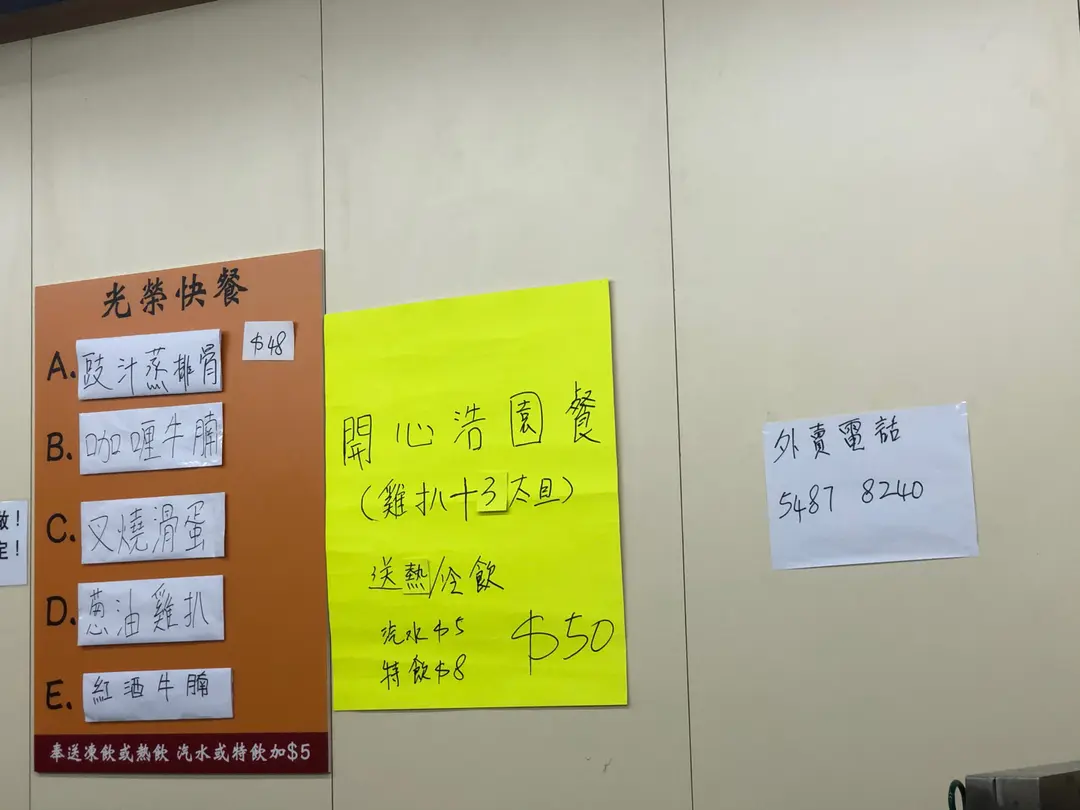 光榮快餐
$48
A. 豉汁蒸排骨
B. 咖喱牛腩
C. 叉燒滑蛋
D. 蔥油雞扒
E. 紅酒牛腩
奉送凍飲或熱飲 汽水或特飲加$5
開心浩園餐
(雞扒十3太旦)
送熱/冷飲
汽水$5
特飲$8
$50
外賣電話
5487 8240